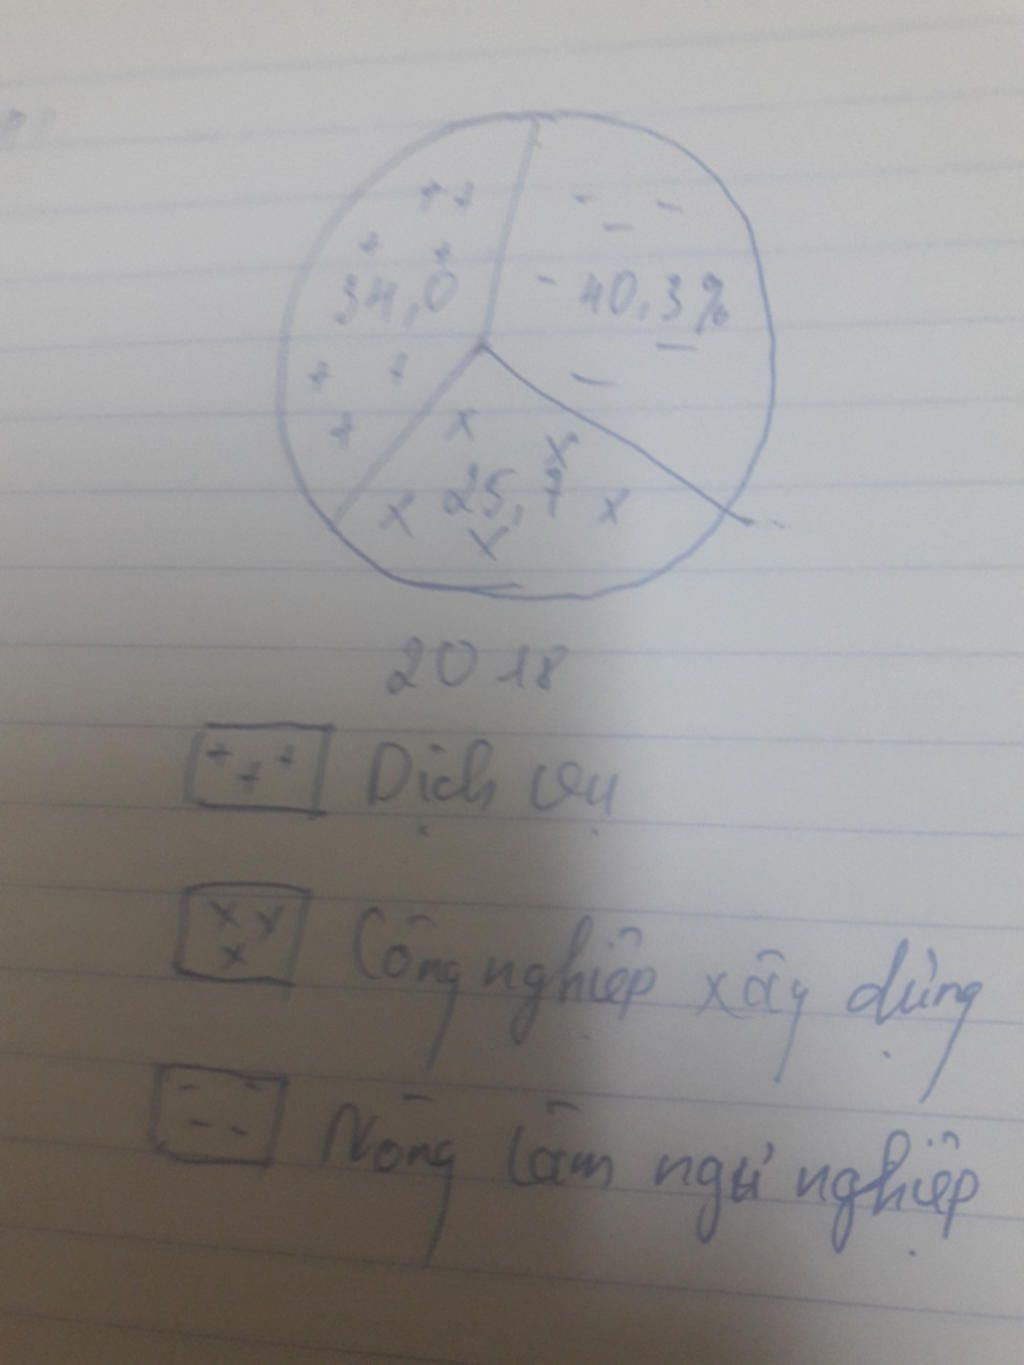 34,0
40,3%
25,7
2018
Dịch vụ
Công nghiệp xây dựng
Nông lâm ngư nghiệp